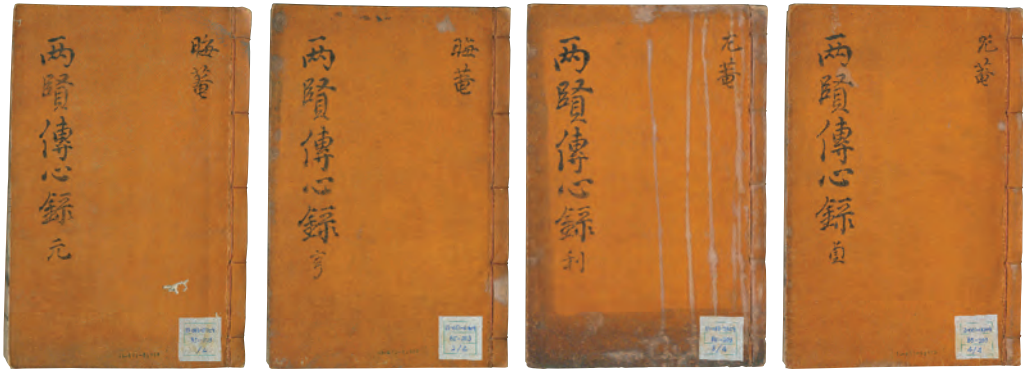 晦菴
两賢傳心錄 元
晦菴
两賢傳心錄 亨
尤菴
两賢傳心錄 利
尤菴
两賢傳心錄 貞